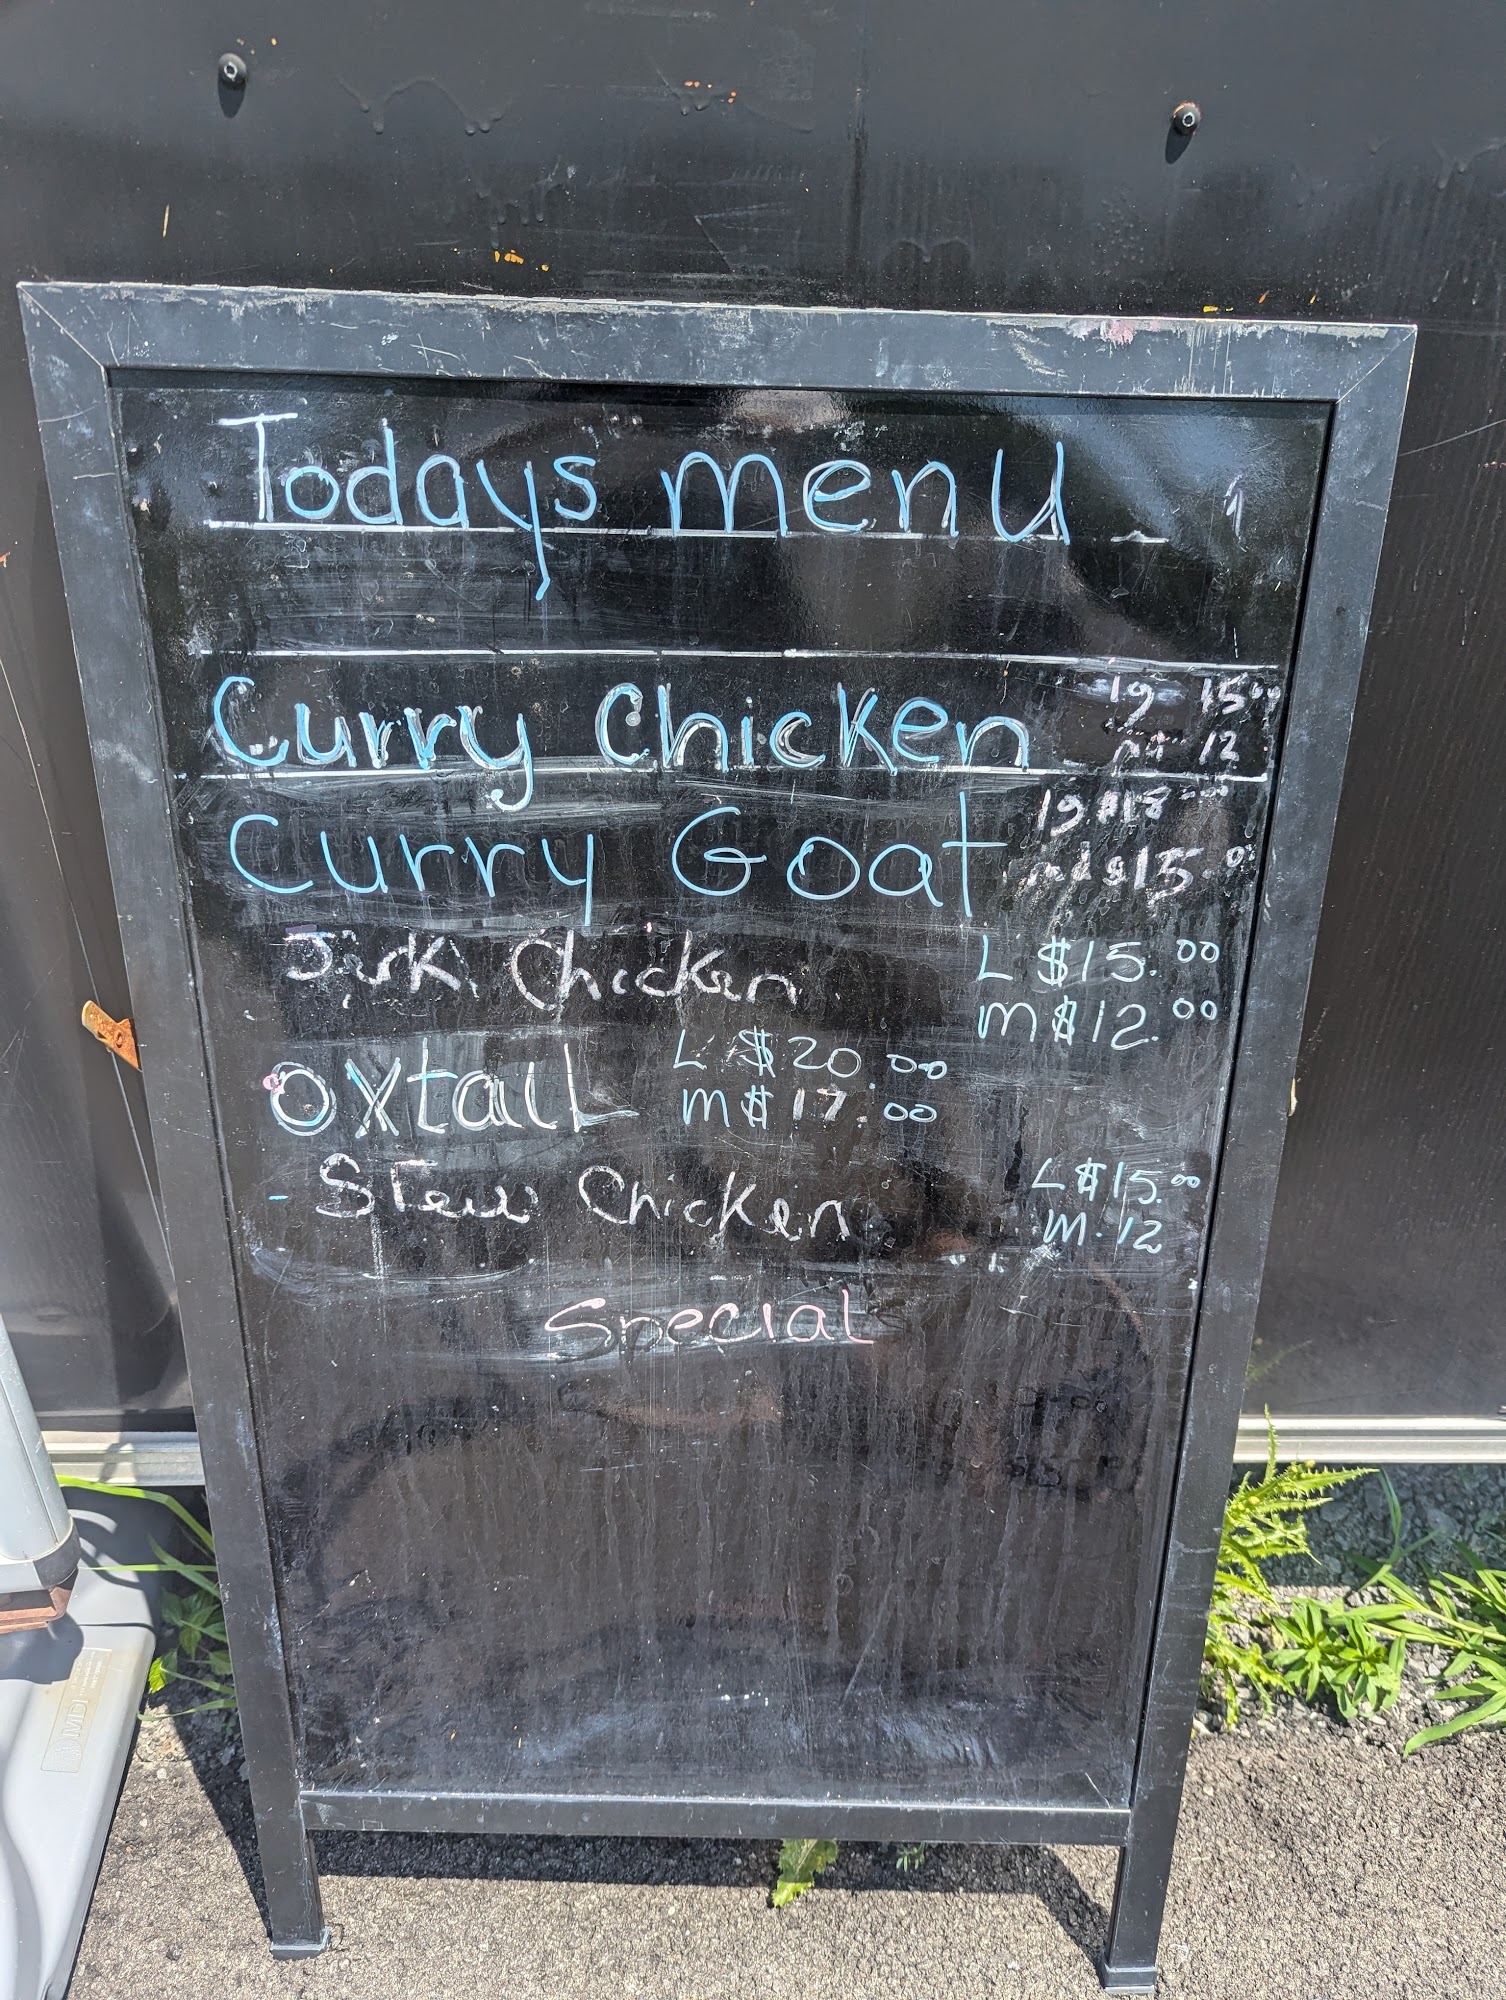 Todays menu
Curry Chicken lg 15.00
12
Curry Goat lg $18.00
md $15.00
Jerk Chicken L $15.00
M $12.00
Oxtail L $20.00
M $17.00
- Stew Chicken L $15.00
M. 12
Special